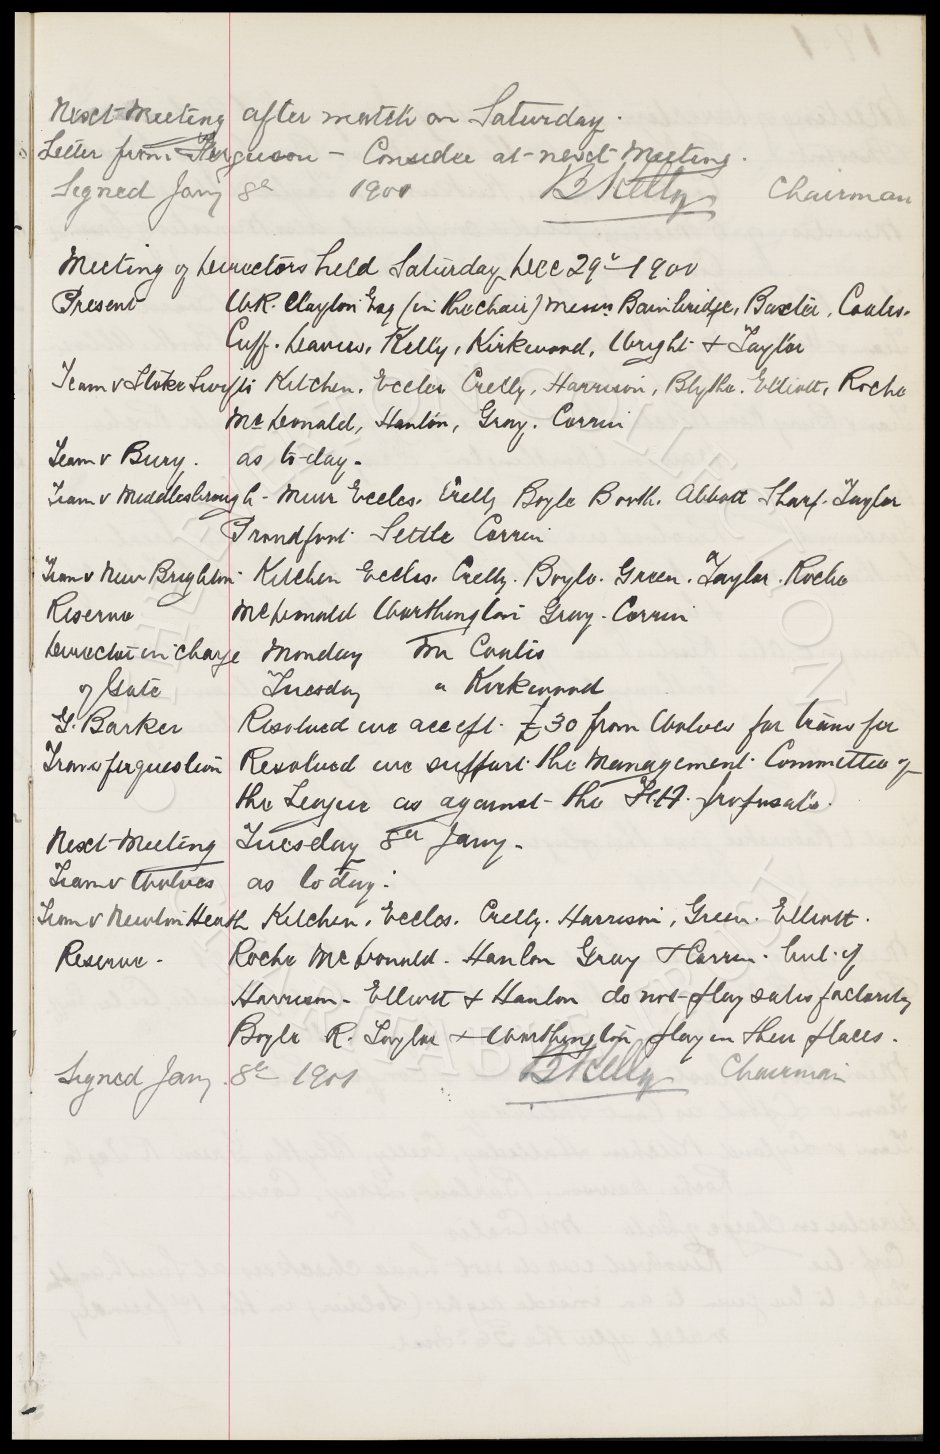 Next Meeting after match on Saturday.
Letter from Ferguson - Consider at next Meeting.
Signed Jany 8th 1901 B Kelly Chairman
Meeting of Directors held Saturday Dec 29th 1900
Present W.R. Clayton Esq (in the chair) Messrs Bainbridge, Baxter, Coates.
Cuff. Davies, Kelly, Kirkwood, Wright & Taylor
Team v Stoke Swifts Kitchen. Eccles Crelly, Harrison, Blythe. Elliott, Roche
McDonald, Hanlon, Gray. Corrin
Team v Bury. as to-day.
Team v Middlesbrough - Muir Eccles. Crelly Boyle Booth. Abbott Sharp. Taylor
Proudfoot Settle Corrin
Team v New Brighton Kitchen Eccles. Crelly. Boyle. Green. Taylor. Roche
Reserve McDonald Worthington Gray. Corrin
Director in charge Monday Mr Coates
of Gate Tuesday " Kirkwood
G. Barker Resolved we accept £30 from Wolves for transfer
Transfer question Resolved we support the Management Committee of
the League as against the F.A. proposals.
Next Meeting Tuesday 8th Jany.
Team v Wolves as to day.
Team v Newton Heath Kitchen, Eccles. Crelly. Harrison, Green. Elliott.
Reserve - Roche McDonald. Hanlon Gray & Corrin. but if
Harrison - Elliott & Hanlon do not play satisfactorily
Boyle R. Taylor & Worthington play in their places.
Signed Jany. 8th 1901 B Kelly Chairman